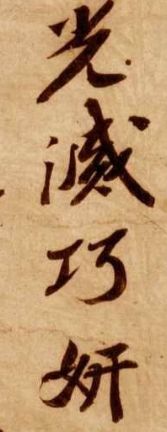 光滅巧妍